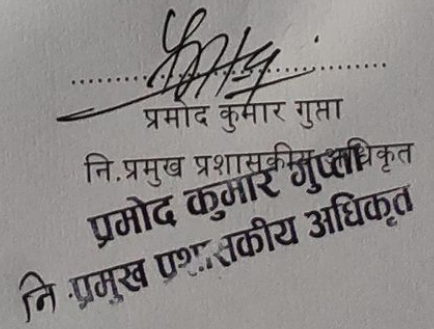 प्रमोद कुमार गुप्ता
नि.प्रमुख प्रशासकीय अधिकृत
प्रमोद कुमार गुप्ता
नि.प्रमुख प्रशासकीय अधिकृत